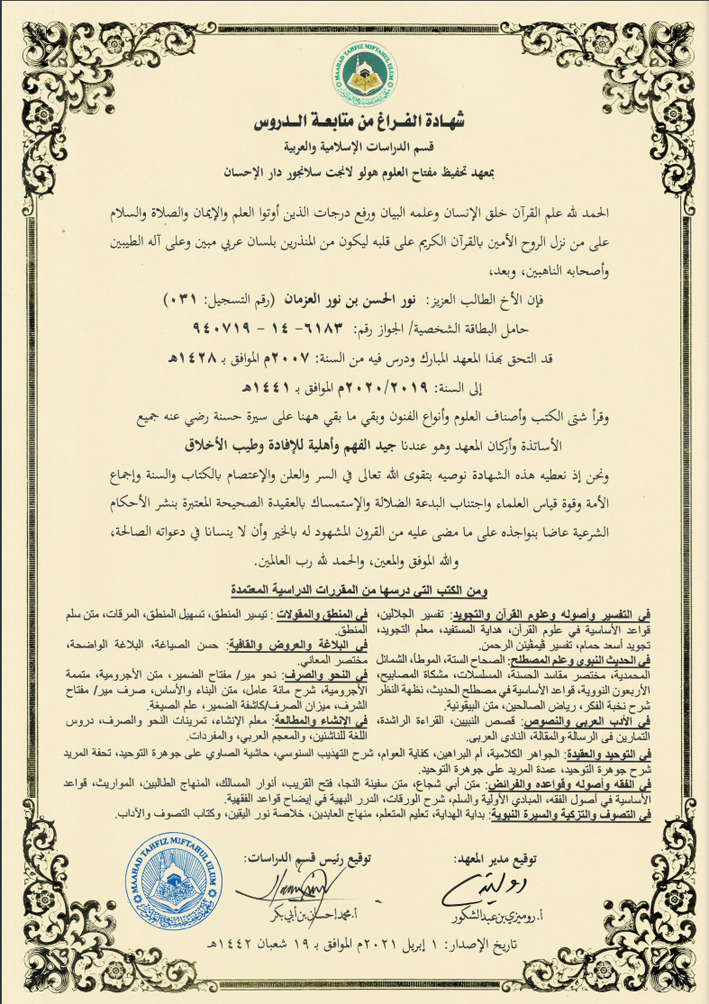 MAAHAD TAHFIZ MIFTAHUL ULUM
شهادة الفراغ من متابعة الدروس
قسم الدراسات الإسلامية والعربية
بمعهد تحفيظ مفتاح العلوم هولو لانجت سلانجور دار الإحسان
الحمد لله علم القرآن خلق الإنسان وعلمه البيان ورفع درجات الذين أوتوا العلم والإيمان والصلاة والسلام
على من نزل الروح الأمين بالقرآن الكريم على قلبه ليكون من المنذرين بلسان عربي مبين وعلى آله الطيبين
وأصحابه الناهبين، وبعد،
فإن الأخ الطالب العزيز: نور الحسن بن نور العزمان (رقم التسجيل: ٠٣١)
حامل البطاقة الشخصية/ الجواز رقم: ٦١٨٣- ١٤ - ٩٤٠٧١٩
قد التحق بهذا المعهد المبارك ودرس فيه من السنة: ٢٠٠٧م الموافق بـ ١٤٢٨هـ
إلى السنة: ٢٠٢٠/٢٠١٩م الموافق بـ ١٤٤١هـ
وقرأ شتى الكتب وأصناف العلوم وأنواع الفنون وبقي ما بقي ههنا على سيرة حسنة رضي عنه جميع
الأساتذة وأركان المعهد وهو عندنا جيد الفهم وأهلية للإفادة وطيب الأخلاق
ونحن إذ نعطيه هذه الشهادة نوصيه بتقوى الله تعالى في السر والعلن والإعتصام بالكتاب والسنة وإجماع
الأمة وقوة قياس العلماء واجتناب البدعة الضلالة والإستمساك بالعقيدة الصحيحة المعتبرة بنشر الأحكام
الشرعية عاضا بنواجذه على ما مضى عليه من القرون المشهود له بالخير وأن لا ينسانا في دعواته الصالحة،
والله الموفق والمعين، والحمد لله رب العالمين.
ومن الكتب التي درسها من المقررات الدراسية المعتمدة
في التفسير وأصوله وعلوم القرآن والتجويد: تفسير الجلالين،
قواعد الأساسية في علوم القرآن، هداية المستفيد، معلم التجويد،
تجويد أسعد حمام، تفسير فيمفينن الرحمن.
في الحديث النبوي وعلم المصطلح: الصحاح الستة، الموطأ، الشمائل
المحمدية، مختصر مقاسد الحسنة، المسلسلات، مشكاة المصابيح،
الأربعون النووية، قواعد الأساسية في مصطلح الحديث، نظهة النظر
شرح نخبة الفكر، رياض الصالحين، متن البيقونية.
في الأدب العربي والنصوص: قصص النبيين، القراءة الراشدة،
التمارين في الرسالة والمقالة، النادى العربى.
في المنطق والمقولات : تيسير المنطق، تسهيل المنطق، المرقات، متن سلم
المنطق.
في البلاغة والعروض والقافية: حسن الصياغة، البلاغة الواضحة،
مختصر المعاني.
في النحو والصرف: نحو مير/ مفتاح الضمير، متن الأجرومية، متممة
الأجرومية، شرح مائة عامل، متن البناء والأساس، صرف مير/ مفتاح
الشرف، ميزان الصرف/كاشفة الضمير، علم الصيغة.
في الإنشاء والمطالعة: معلم الإنشاء، تمرينات النحو والصرف، دروس
اللغة للناشئين، والمعجم العربي، والمفردات.
في التوحيد والعقيدة: الجواهر الكلامية، أم البراهين، كفاية العوام، شرح التهذيب السنوسي، حاشية الصاوي على جوهرة التوحيد، تحفة المريد
شرح جوهرة التوحيد، عمدة المريد على جوهرة التوحيد.
في الفقه وأصوله وقواعده والفرائض: متن أبي شجاع، متن سفينة النجا، فتح القريب، أنوار المسالك، المنهاج الطالبين، المواريث، قواعد
الأساسية في أصول الفقه، المبادي الأولية والسلم، شرح الورقات، الدرر البهية في إيضاح قواعد الفقهية.
في التصوف والتزكية والسيرة النبوية: بداية الهداية، تعليم المتعلم، منهاج العابدين، خلاصة نور اليقين، وكتاب التصوف والآداب.
توقيع مدير المعهد:
أ. روميزي بن عبد الشكور
توقيع رئيس قسم الدراسات:
أ. محمد إحسان بن أبي بكر
MAAHAD TAHFIZ MIFTAHUL ULUM
تاريخ الإصدار: ١ إبريل ٢٠٢١م الموافق بـ ١٩ شعبان ١٤٤٢هـ